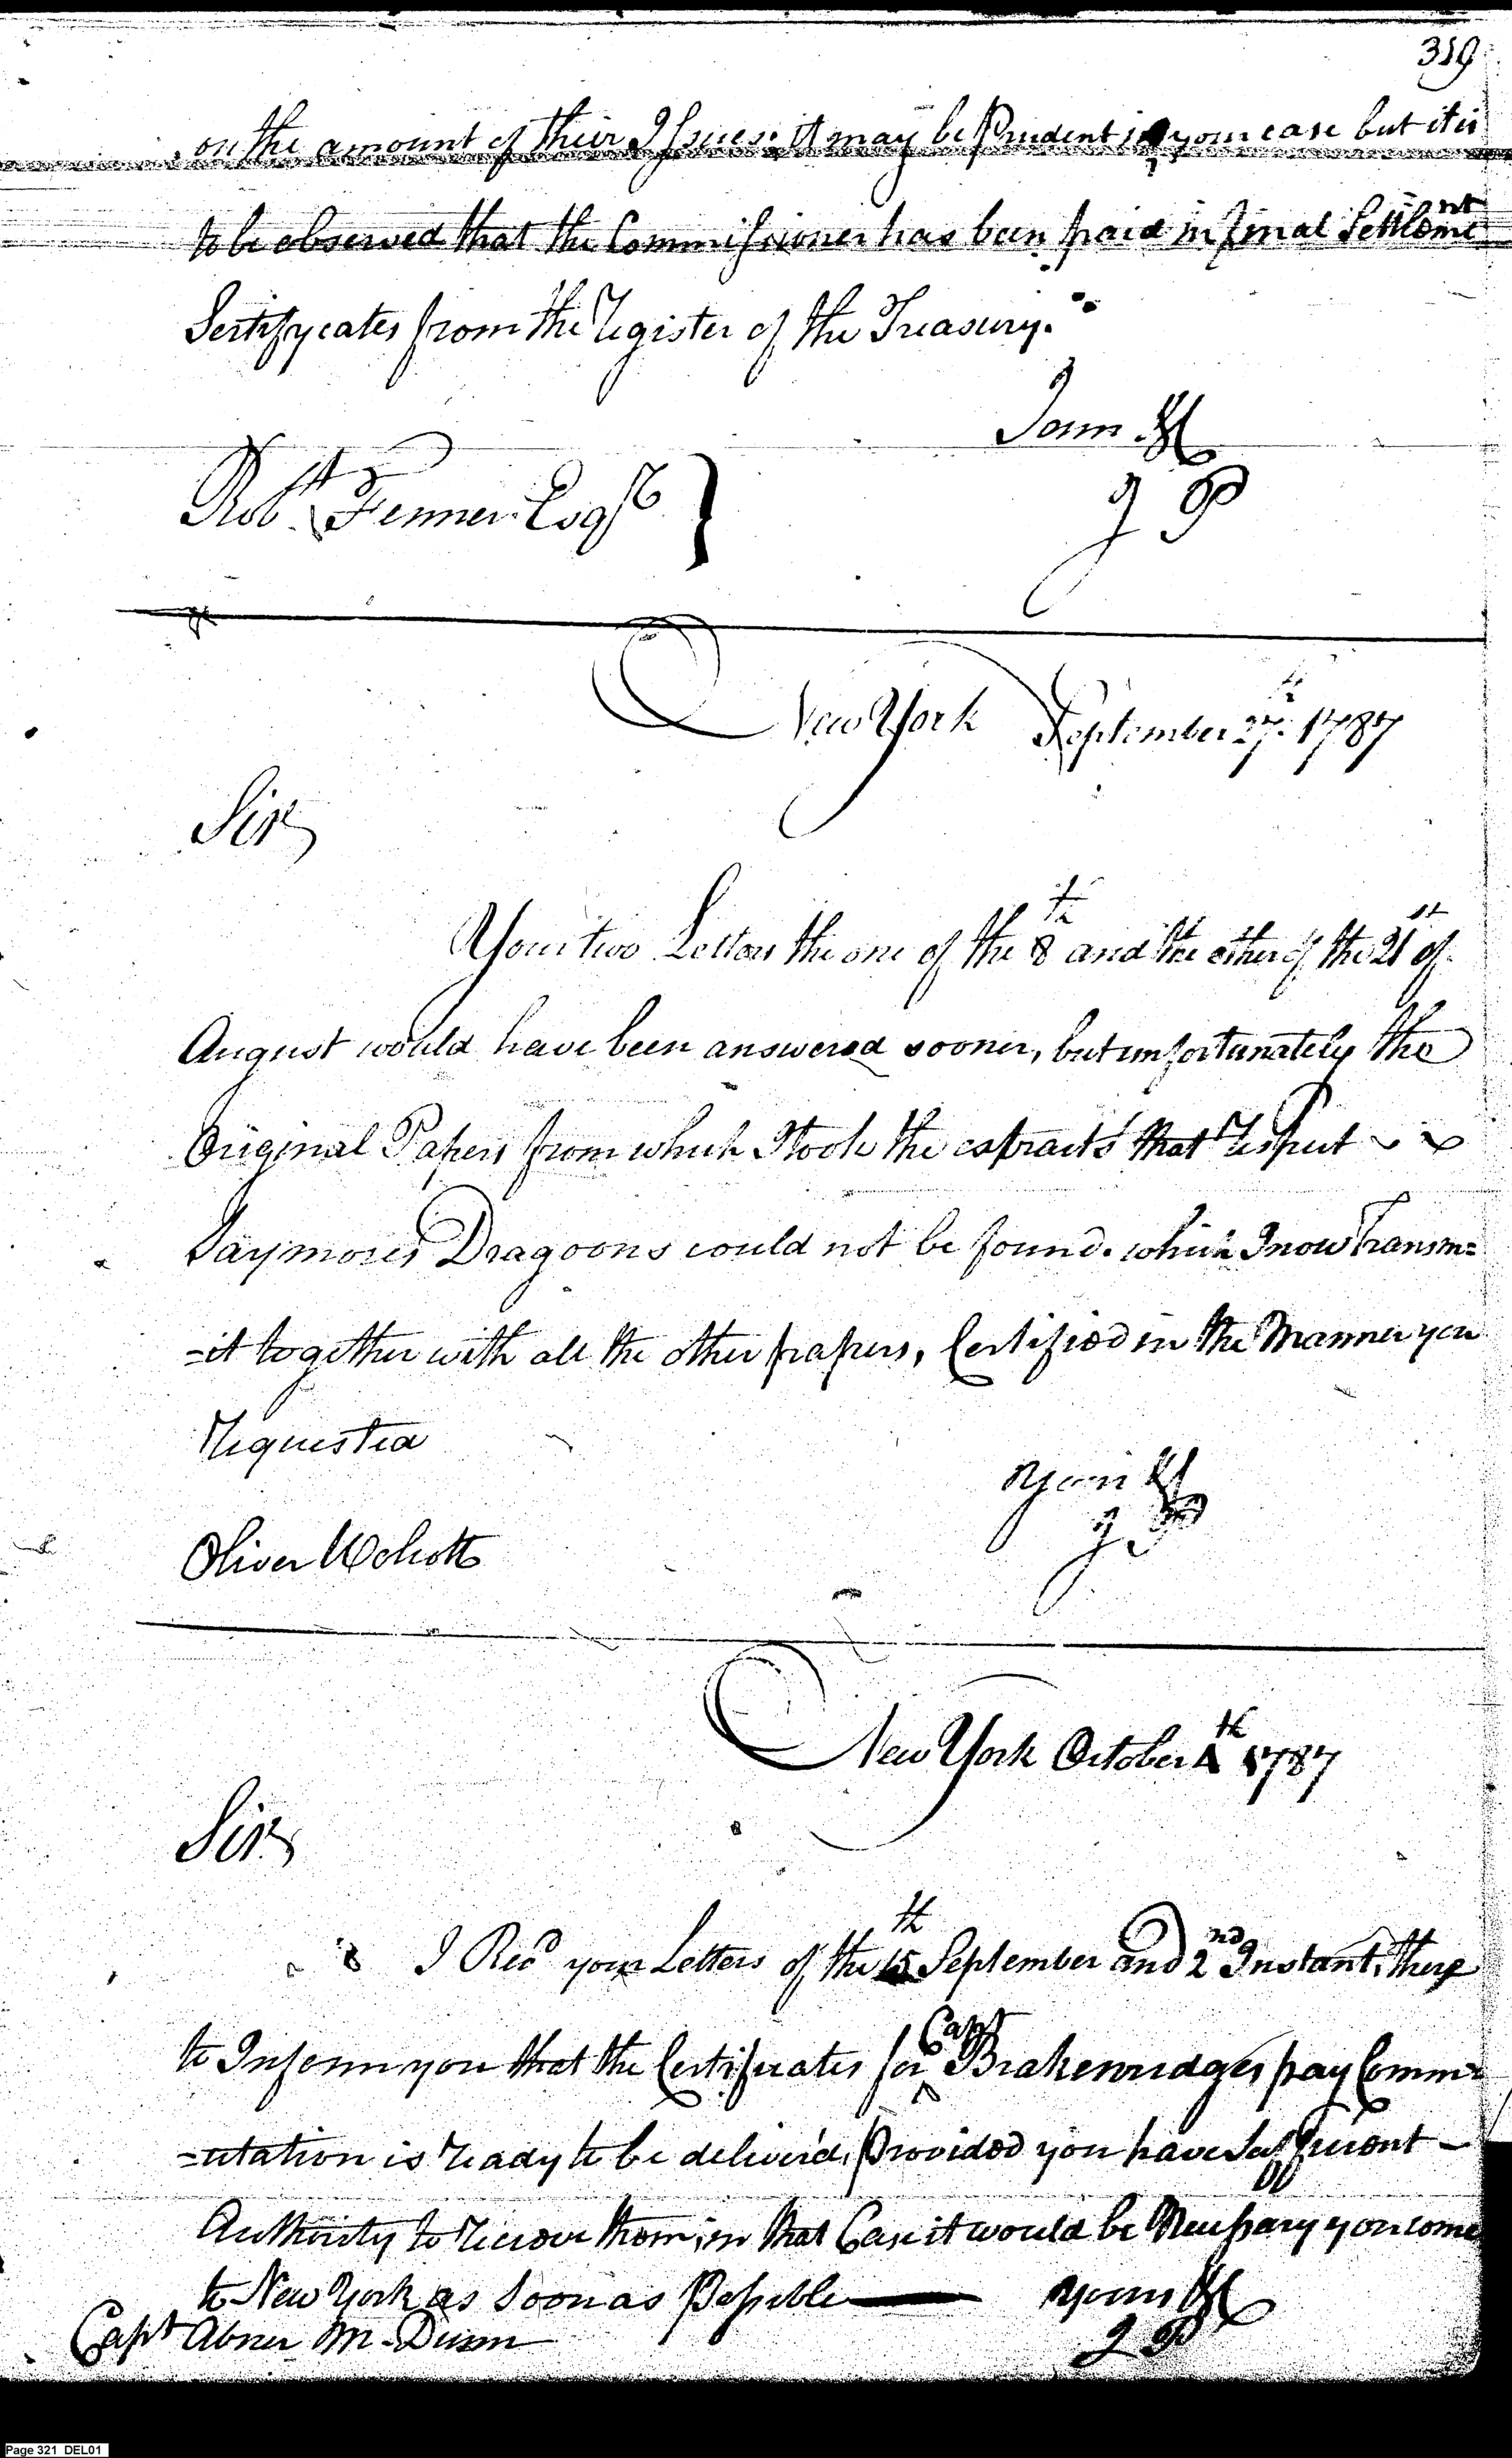 319
on the amount of their Issues. it may be Prudent in your case but it is
to be observed that the Commissioner has been paid in Final Settlement
Sertifycates from the Register of the Treasury.
I am &c
J P
Robt. Fenner Esqr
New York September 27th. 1787
Sir
Your two Letters the one of the 8th and the other of the 21st of
August would have been answered sooner, but unfortunately the
Original Papers from which I took the extracts that respect
Seymores Dragoons could not be found. which I now Transm=
=it together with all the other papers, Certified in the Manner you
Requested
Yours &c
J P
Oliver Wolcott
New York October 4th 1787
Sir
I Recd your Letters of the 15th September and 2nd Instant, these
to Inform you that the Certificates for Capt Brakenridges pay Comm=
=utation is ready to be deliver'd, Provided you have Sufficient
Authority to receive them, in that Case it would be Necessary you come
to New York as Soon as Possible
yours &c
J P
Capt Abner M. Dunn
Page 321 DEL01